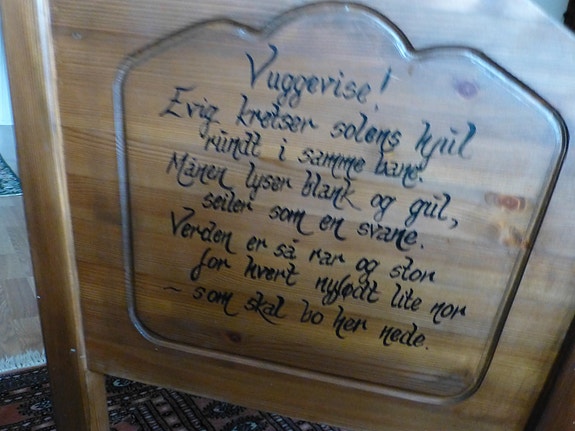 Vuggevise!
Evig kretser solens hjul
rundt i samme bane.
Månen lyser blank og gul,
seiler som en svane.
Verden er så rar og stor
for hvert nyfødt lite nor
~ som skal bo her nede.